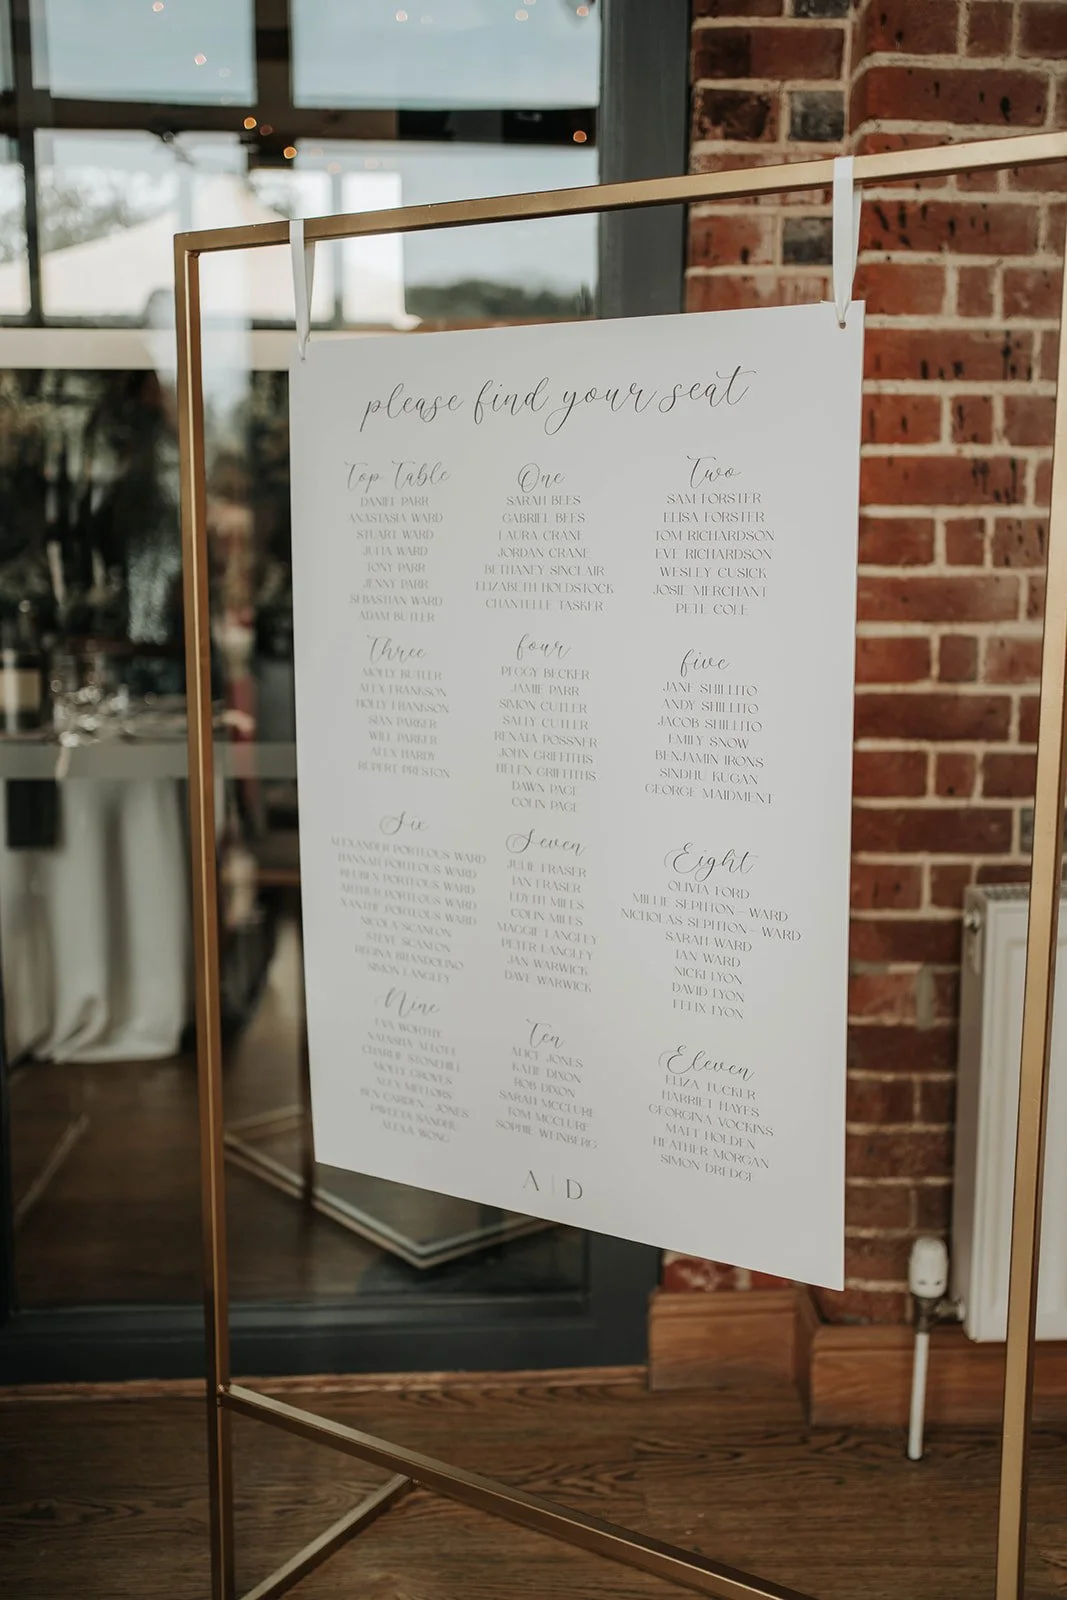 please find your seat
Top Table
DANIEL PARR
ANASTASIA WARD
STUART WARD
JULIA WARD
TONY PARR
JENNY PARR
SEBASTIAN WARD
ADAM BUTLER
One
SARAH BEES
GABRIEL BEES
LAURA CRANE
JORDAN CRANE
BETHANEY SINCLAIR
ELIZABETH HOLDSTOCK
CHANTELLE TASKER
Two
SAM FORSTER
ELISA FORSTER
TOM RICHARDSON
EVE RICHARDSON
WESLEY CUSICK
JOSIE MERCHANT
PETE COLE
Three
MOLLY BUTLER
ALEX FRANKSON
HOLLY FRANKSON
SIAN PARKER
WILL PARKER
ALEX HARDY
RUPERT PRESTON
four
PEGGY BECKER
JAMIE PARR
SIMON CUTLER
SALLY CUTLER
RENATA POSSNER
JOHN GRIFFITHS
HELEN GRIFFITHS
DAWN PAGE
COLIN PAGE
five
JANE SHILLITO
ANDY SHILLITO
JACOB SHILLITO
EMILY SNOW
BENJAMIN IRONS
SINDHU KUGAN
GEORGE MAIDMENT
Six
ALEXANDER PORTEOUS WARD
HANNAH PORTEOUS WARD
REUBEN PORTEOUS WARD
ARTHUR PORTEOUS WARD
XANTHE PORTEOUS WARD
NICOLA SCANLON
STEVE SCANLON
REGINA BRANDOLINO
SIMON LANGLEY
Seven
JULIE FRASER
IAN FRASER
EDYTH MILES
COLIN MILES
MAGGIE LANGLEY
PETER LANGLEY
JAN WARWICK
DAVE WARWICK
Eight
OLIVIA FORD
MILLIE SEPHTON-WARD
NICHOLAS SEPHTON-WARD
SARAH WARD
IAN WARD
NICKI LYON
DAVID LYON
FELIX LYON
Nine
EVA WORTHY
NATASHA ALLOTT
CHARLIE STONEHILL
MOLLY GROVES
ALEX MELLORS
BEN CARDEN-JONES
PAVEETA SANDER
ALEXA WONG
Ten
ALICE JONES
KATIE DIXON
ROB DIXON
SARAH MCCLURE
TOM MCCLURE
SOPHIE WEINBERG
Eleven
ELIZA TUCKER
HARRIET HAYES
GEORGINA VOCKINS
MATT HOLDEN
HEATHER MORGAN
SIMON DREDGE
A | D